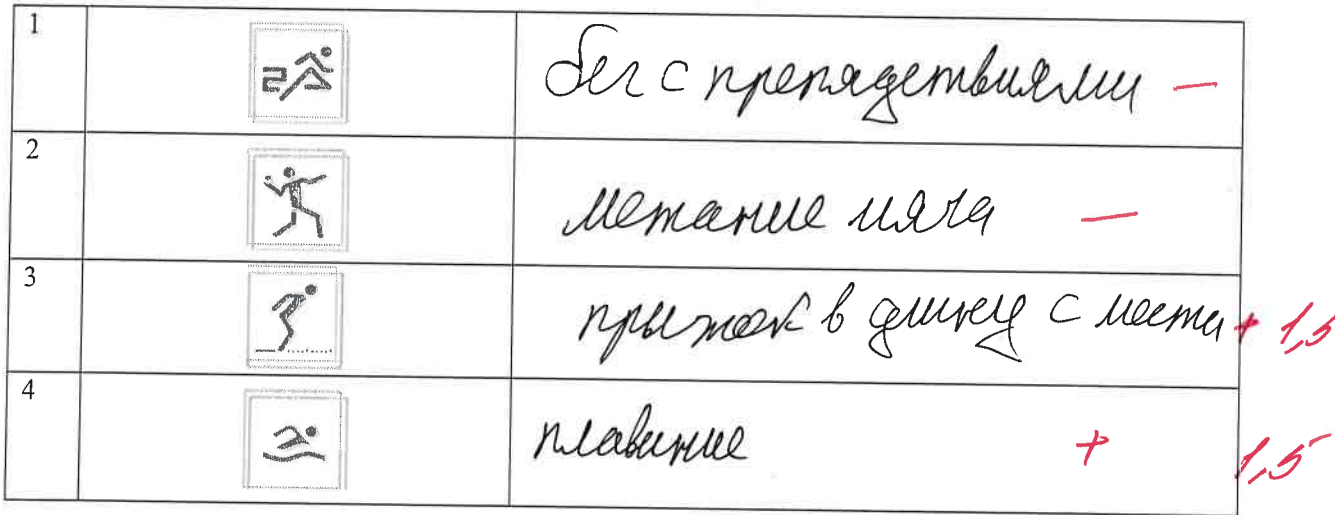 1 бег с препядствиями –
2 метание мяча –
3 прыжок в длину с места + 1,5
4 плавание + 1,5